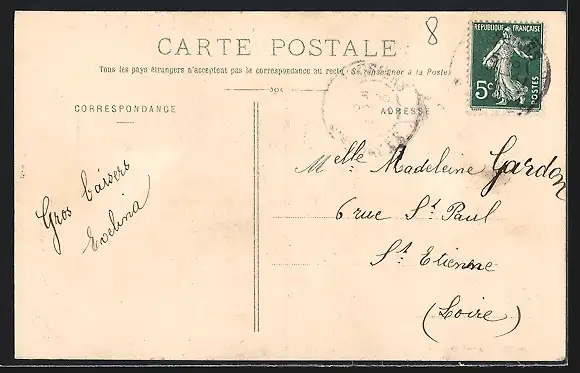 8
RÉPUBLIQUE FRANÇAISE
5c
POSTES
CARTE POSTALE
Tous les pays étrangers n'acceptent pas la correspondance au recto (Se renseigner à la Poste)
CORRESPONDANCE
ADRESSE
Gros baisers
Evelina
Melle Madeleine Gardon
6 rue St Paul
St Etienne
(Loire)